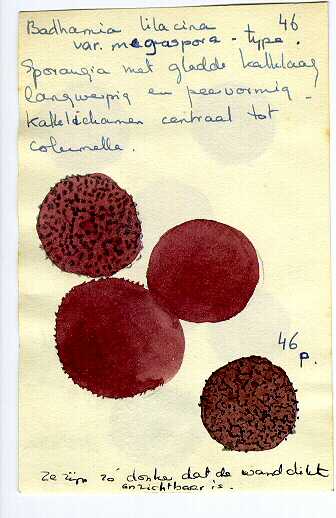 Badhamia lilacina 46
var. megaspora - type.
Sporangia met gladde kalklaag
langwerpig en peervormig -
Kalklichamen centraal tot
columella.
46
p.
Ze zijn zó donker dat de wanddikte
onzichtbaar is.